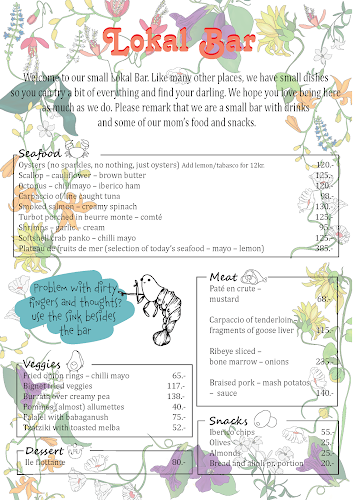 Lokal Bar
Welcome to our small Lokal Bar. Like many other places, we have small dishes
so you can try a bit of everything and find your darling. We hope you love being here
as much as we do. Please remark that we are a small bar with drinks
and some of our mom's food and snacks.
Seafood
Oysters (no sparkles, no nothing, just oysters) Add lemon/tabasco for 12kr. 120.-
Scallop – cauliflower – brown butter 125.-
Octopus – chilimayo – iberico ham 120.-
Carpaccio of line caught tuna 98.-
Smoked salmon – creamy spinach 130.-
Turbot porched in beurre monte – comté 125.-
Shrimps – garlic – cream 95.-
Softshell crab panko – chilli mayo 125.-
Plateau de fruits de mer (selection of today's seafood – mayo – lemon) 385.-
Problem with dirty
fingers and thoughts?
use the sink besides
the bar
Meat
Paté en crute –
mustard 68.-
Carpaccio of tenderloin
fragments of goose liver 115.-
Ribeye sliced –
bone marrow – onions 235.-
Braised pork – mash potatos
– sauce 140.-
Veggies
Fried onion rings – chilli mayo 65.-
Bignet fried veggies 117.-
Burrata over creamy pea 138.-
Pommes (almost) allumettes 40.-
Falafel with babaganush 75.-
Tzatziki with toasted melba 52.-
Snacks
Iberico chips 55.-
Olives 25.-
Almonds 25.-
Bread and aïoli pr. portion 20.-
Dessert
Ile flottante 80.-